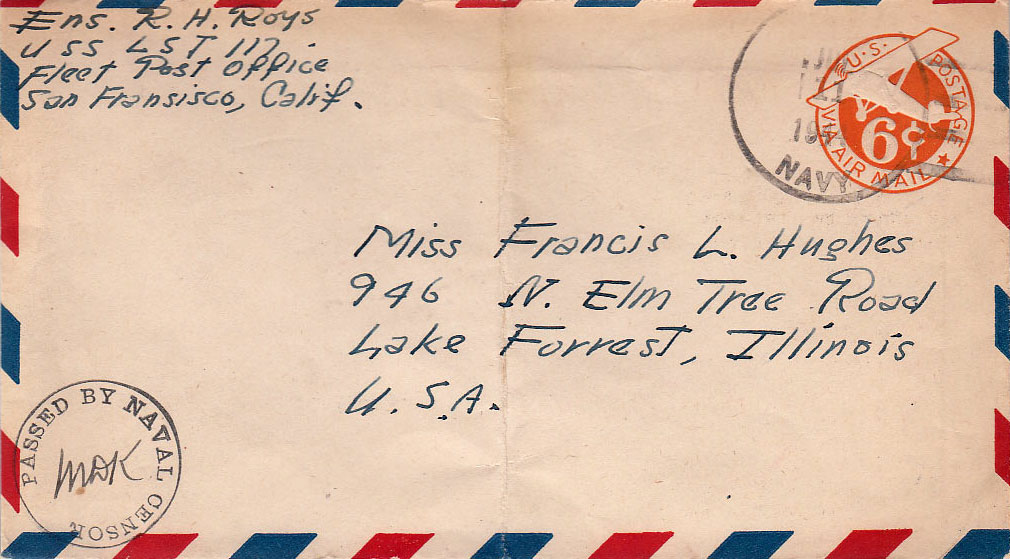 Ens. R. H. Roys
USS LST 117
Fleet Post Office
San Fransisco, Calif.
NAVY
U.S. POSTAGE
6¢
VIA AIR MAIL
Miss Francis L. Hughes
946 N. Elm Tree Road
Lake Forrest, Illinois
U.S.A.
PASSED BY NAVAL CENSOR
MDK